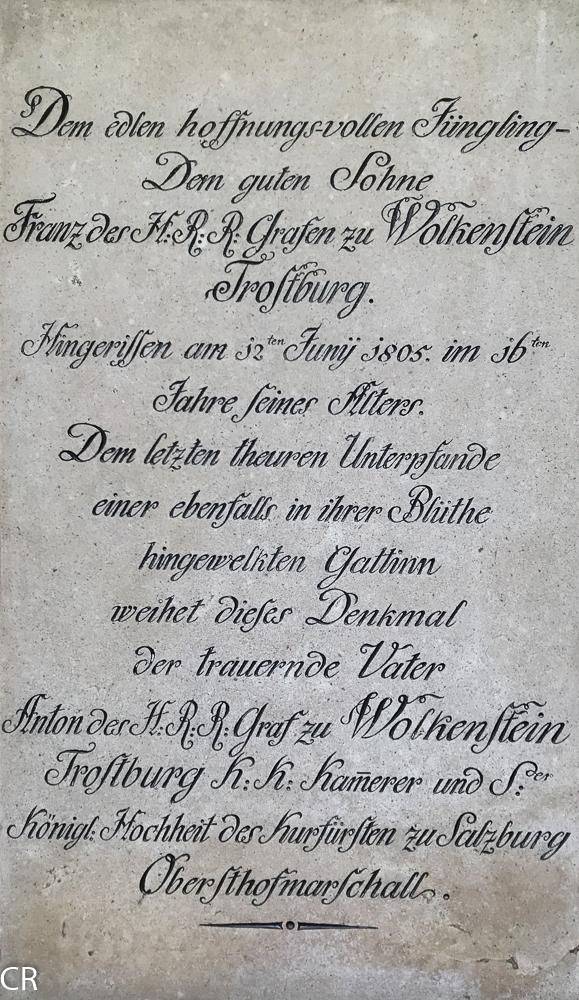 Dem edlen hoffnungs-vollen Jüngling-
Dem guten Sohne
Franz des H: R: R: Grafen zu Wolkenſtein
Troſtburg.
Hingeriſſen am 12ten Junÿ 1805. im 16ten
Jahre ſeines Alters.
Dem letzten theuren Unterpfande
einer ebenfalls in ihrer Blüthe
hingewelkten Gattinn
weihet dieſes Denkmal
der trauernde Vater
Anton des H: R: R: Graf zu Wolkenſtein
Troſtburg K: K: Kam̄erer und S:der
Königl: Hochheit des Kurfürſten zu Salzburg
Oberſthofmarſchall.
CR